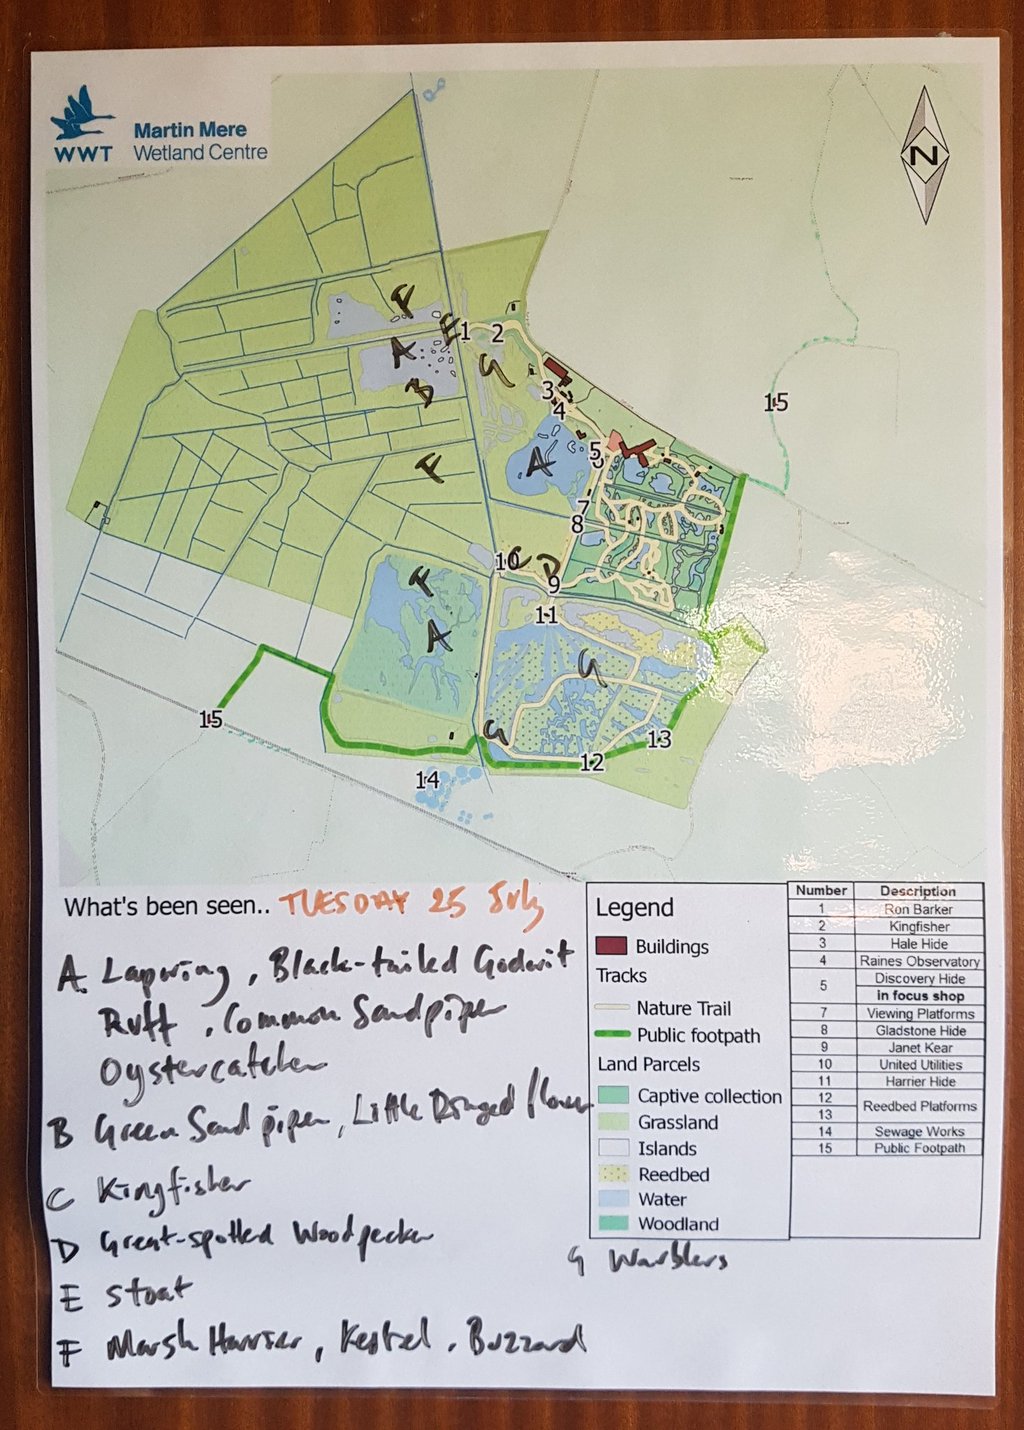 WWT
Martin Mere
Wetland Centre
N
F
E
1
2
A
G
B
3
4
15
F
A
5
7
8
10
C
D
9
F
11
A
G
15
G
13
12
14
What's been seen.. TUESDAY 25 July
A Lapwing, Black-tailed Godwit
Ruff, Common Sandpiper
Oystercatcher
B Green Sandpiper, Little Ringed Plover
C Kingfisher
D Great-spotted Woodpecker
E Stoat
F Marsh Harrier, Kestrel, Buzzard
G Warblers
Legend
Buildings
Tracks
Nature Trail
Public footpath
Land Parcels
Captive collection
Grassland
Islands
Reedbed
Water
Woodland
Number Description
1 Ron Barker
2 Kingfisher
3 Hale Hide
4 Raines Observatory
5 Discovery Hide
in focus shop
7 Viewing Platforms
8 Gladstone Hide
9 Janet Kear
10 United Utilities
11 Harrier Hide
12
13 Reedbed Platforms
14 Sewage Works
15 Public Footpath